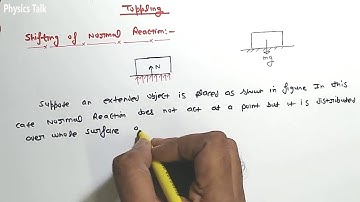 Physics Talk
Toppling
Shifting of Normal Reaction:-
N
mg
Suppose an extended object is placed as shown in figure In this
case Normal Reaction does not act at a point but it is distributed
over whole surface a